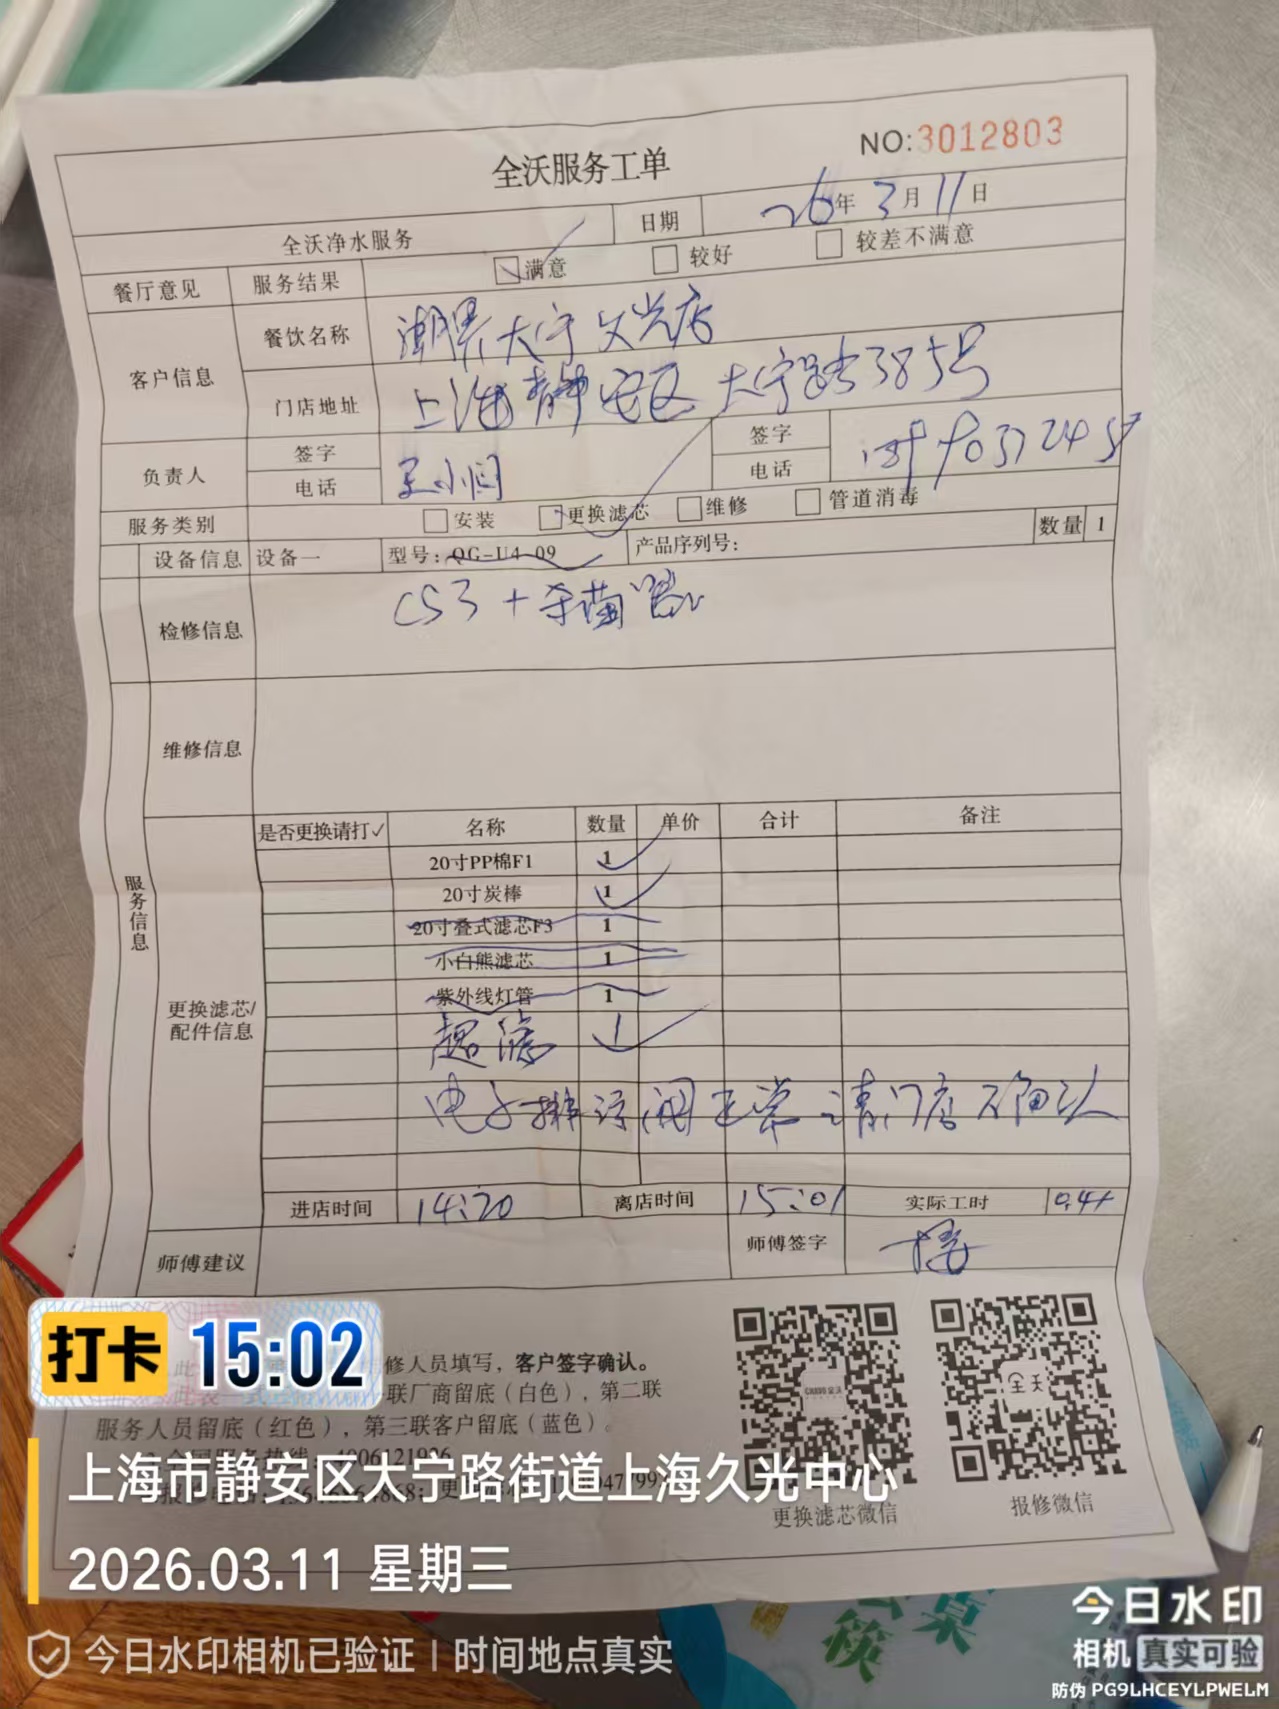 NO:3012803
全沃服务工单
全沃净水服务 日期 26年3月11日
餐厅意见 服务结果 满意 较好 较差不满意
客户信息 餐饮名称 潮界大宁久光店
门店地址 上海静安区大宁路385号
负责人 签字 签字
电话 王小闫 电话
服务类别 安装 更换滤芯 维修 管道消毒
设备信息 设备一 型号:QG-U4-09 产品序列号: 数量 1
检修信息 CS3+杀菌
维修信息
服务信息
是否更换请打✓ 名称 数量 单价 合计 备注
20寸PP棉F1 1
20寸炭棒 1
20寸叠式滤芯F3 1
小白熊滤芯 1
紫外线灯管 1
更换滤芯/配件信息
超滤 1
电子排污阀正常 请门店确认
进店时间 14:20 离店时间 15:01 实际工时
师傅建议 师傅签字
打卡 15:02
修人员填写，客户签字确认。
联厂商留底（白色），第二联
服务人员留底（红色），第三联客户留底（蓝色）。
更换滤芯微信 报修微信
上海市静安区大宁路街道上海久光中心
2026.03.11 星期三
今日水印相机已验证 | 时间地点真实
今日水印
相机 真实可验
防伪 PG9LHCEYLPWELM